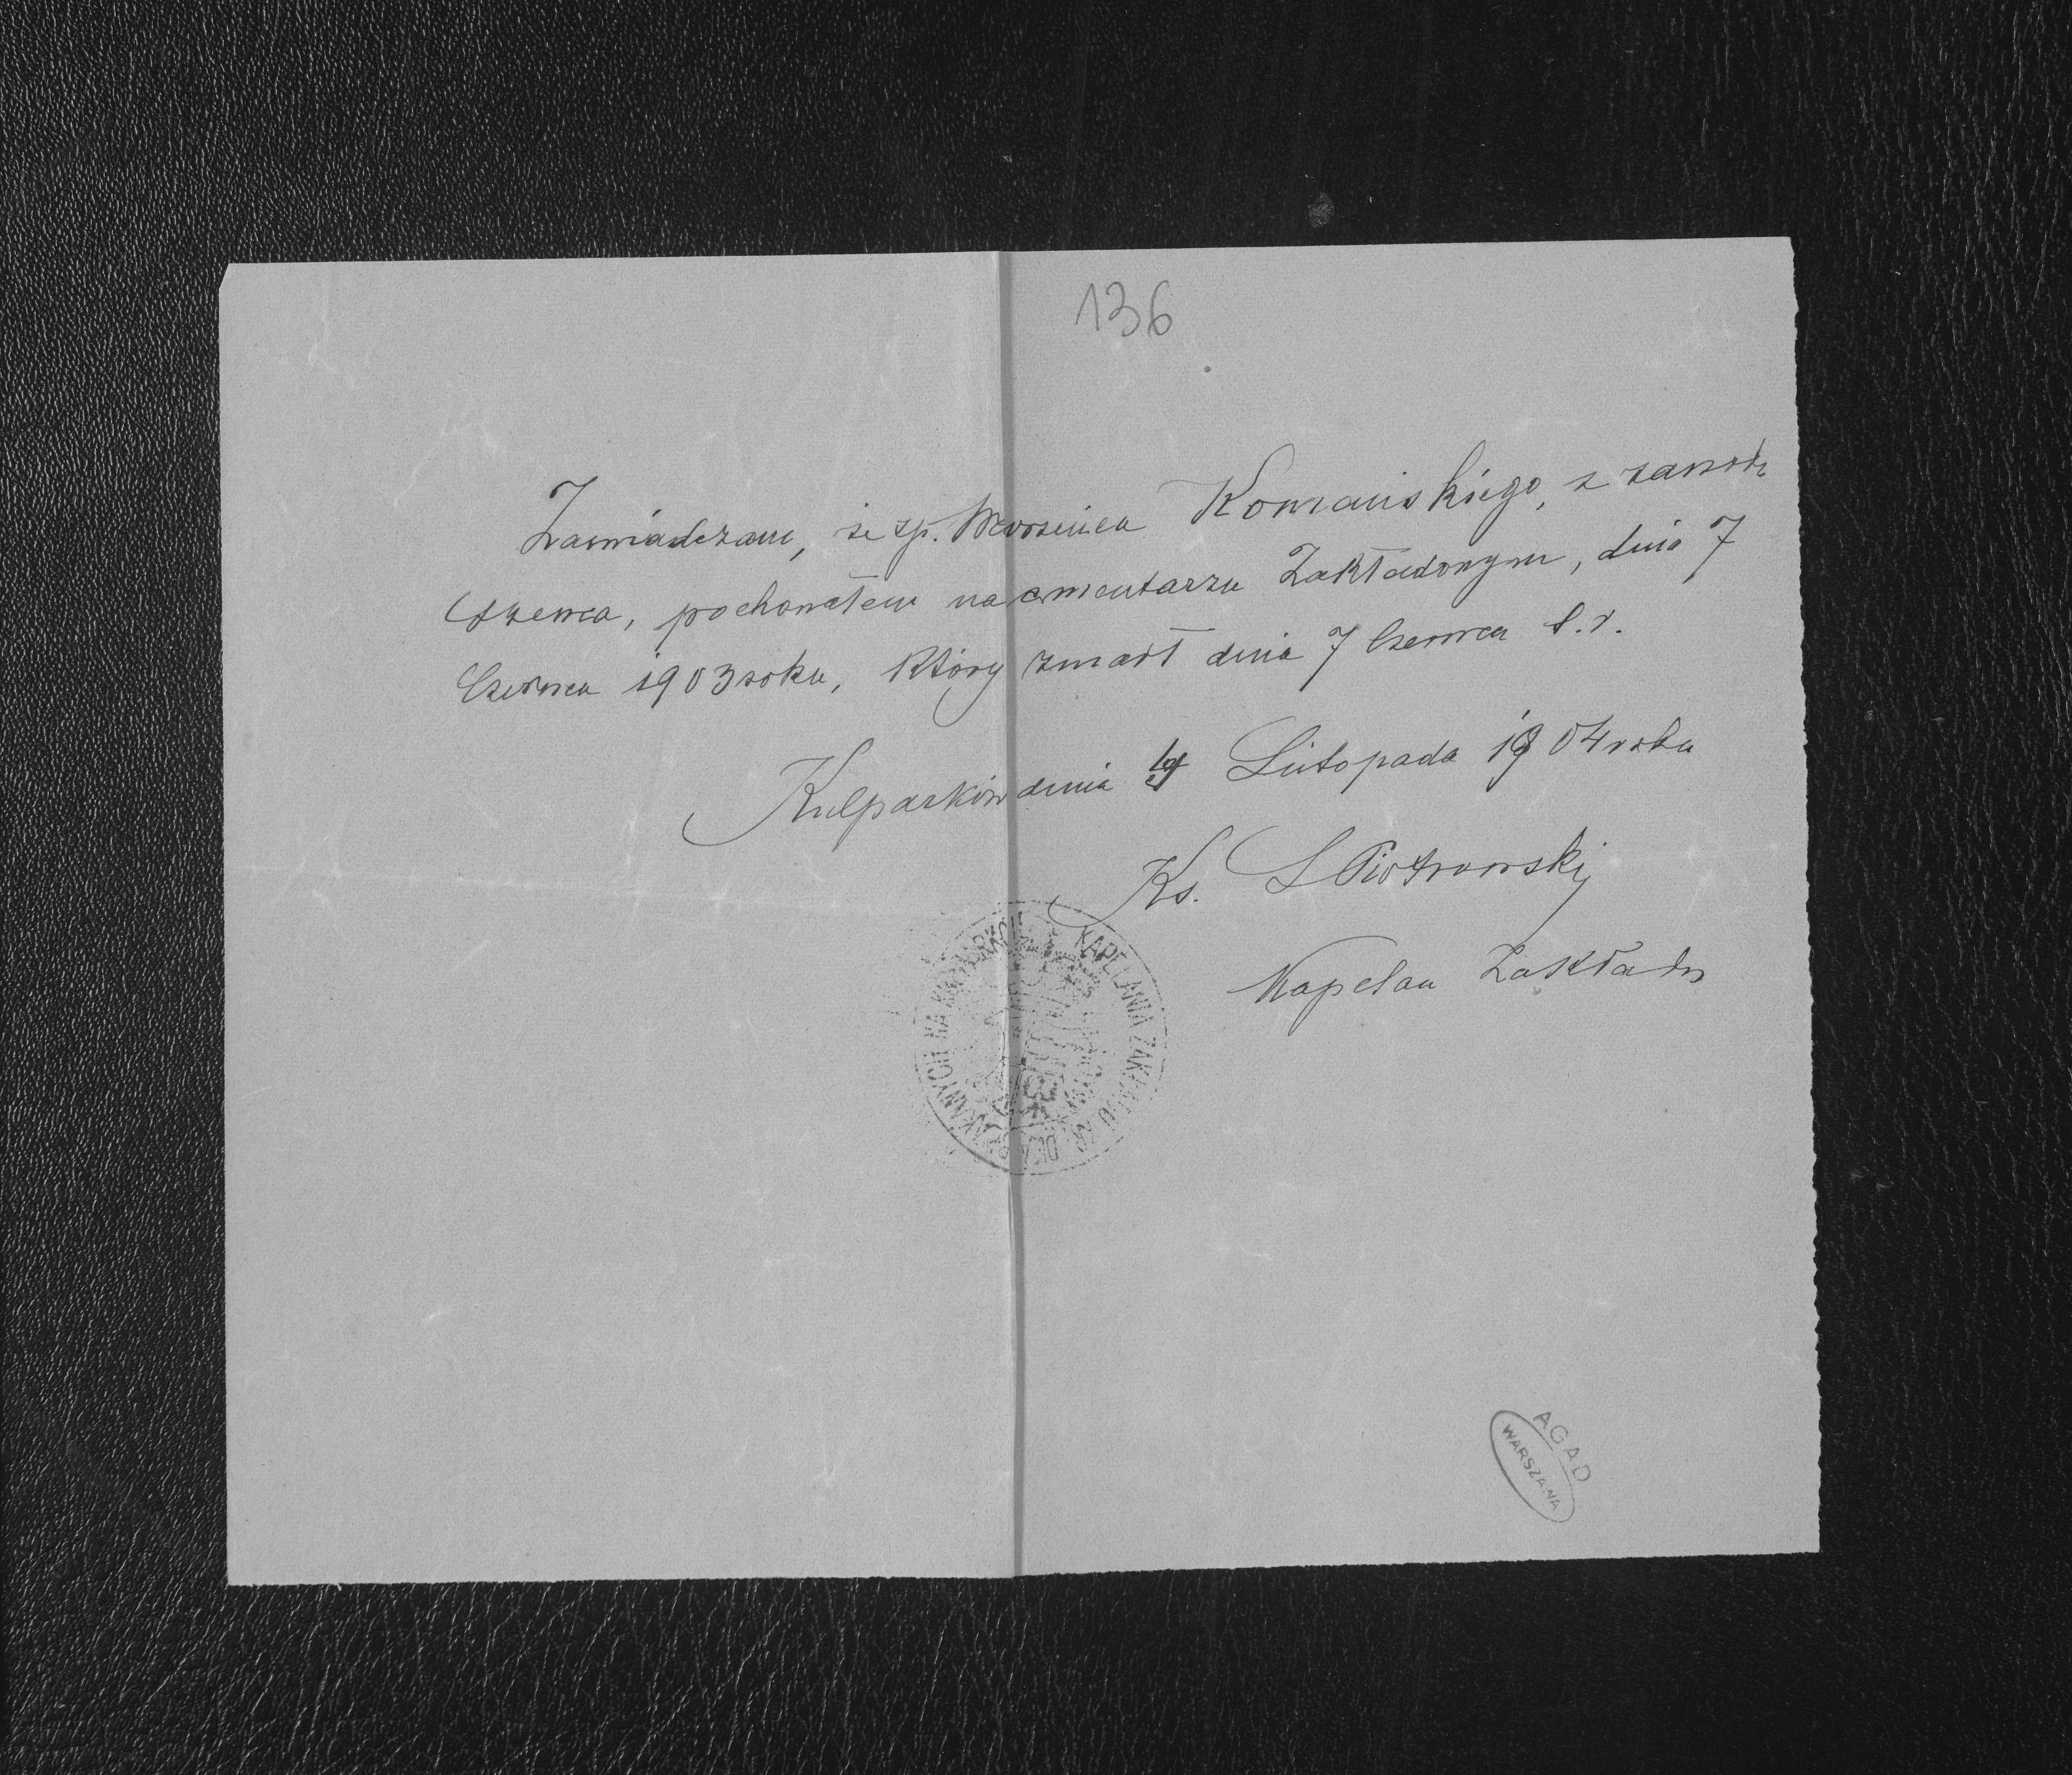 136
Zaświadczam, że śp. Wawrzeńca Komańskiego, z zawodu
szewca, pochowałem na cmentarzu Zakładowym, dnia 7
Czerwca 1903 roku, który zmarł dnia 7 Czerwca t.r.
Kulparków dnia Listopada 1904 roku
Ks. L Piotrowski
Kapelan Zakładu
KAPELANIA ZAKŁADU DLA OBŁĄKANYCH NA KULPARKOWIE
AGAD
WARSZAWA